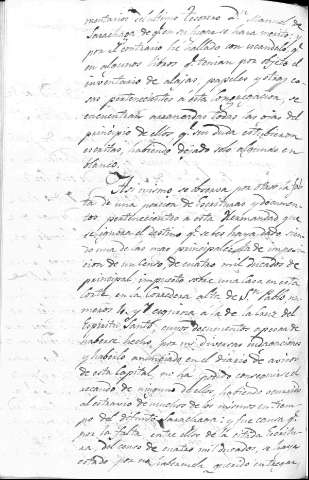 mentarios el último tesorero Dⁿ Manuel de
Sarachaga de qⁿ en su honor se hará merito; y
por el contrario he hallado con escandalo qᵉ
en algunos libros qᵉ tenian por objeto el
inventario de alajas, papeles y otras co-
sas pertenecientes a esta Congregacion, se
encuentran arrancadas todas las ojas del
principio de ellos qᵉ sin duda estubieron
escritas, habiendo dejado solo algunas en
blanco.
Asi mismo se observa por otaro la fal-
ta de una porcion de Escrituras y documen-
tos pertenecientes a esta Hermandad que
se ignoran el destino qᵉ se les haya dado, sien-
do una de las mas principales la de imposi-
cion de un Censo, de cuatro mil ducados de
principal, impuesto sobre una casa en esta
Corte, en la Corredera alta de Sⁿ Pablo nu-
mero 10, y esquina a la de la Cruz del
Espiritu Santo, cuyos documentos apesar de
haberse hecho por mi diversas indagaciones
y haberlo anunciado en el diario de avisos
de esta Capital, no ha podido conseguirse el
recando de ninguno de ellos, habiendo ocurrido
el estravio de muchos de los mismos en tiem-
po del difunto Sarachaga: y fue causa qᵉ
por la falta entre ellos de la citada Escritu-
ra del censo de cuatro mil ducados, se haya
estado por no haberla, querido entregar,